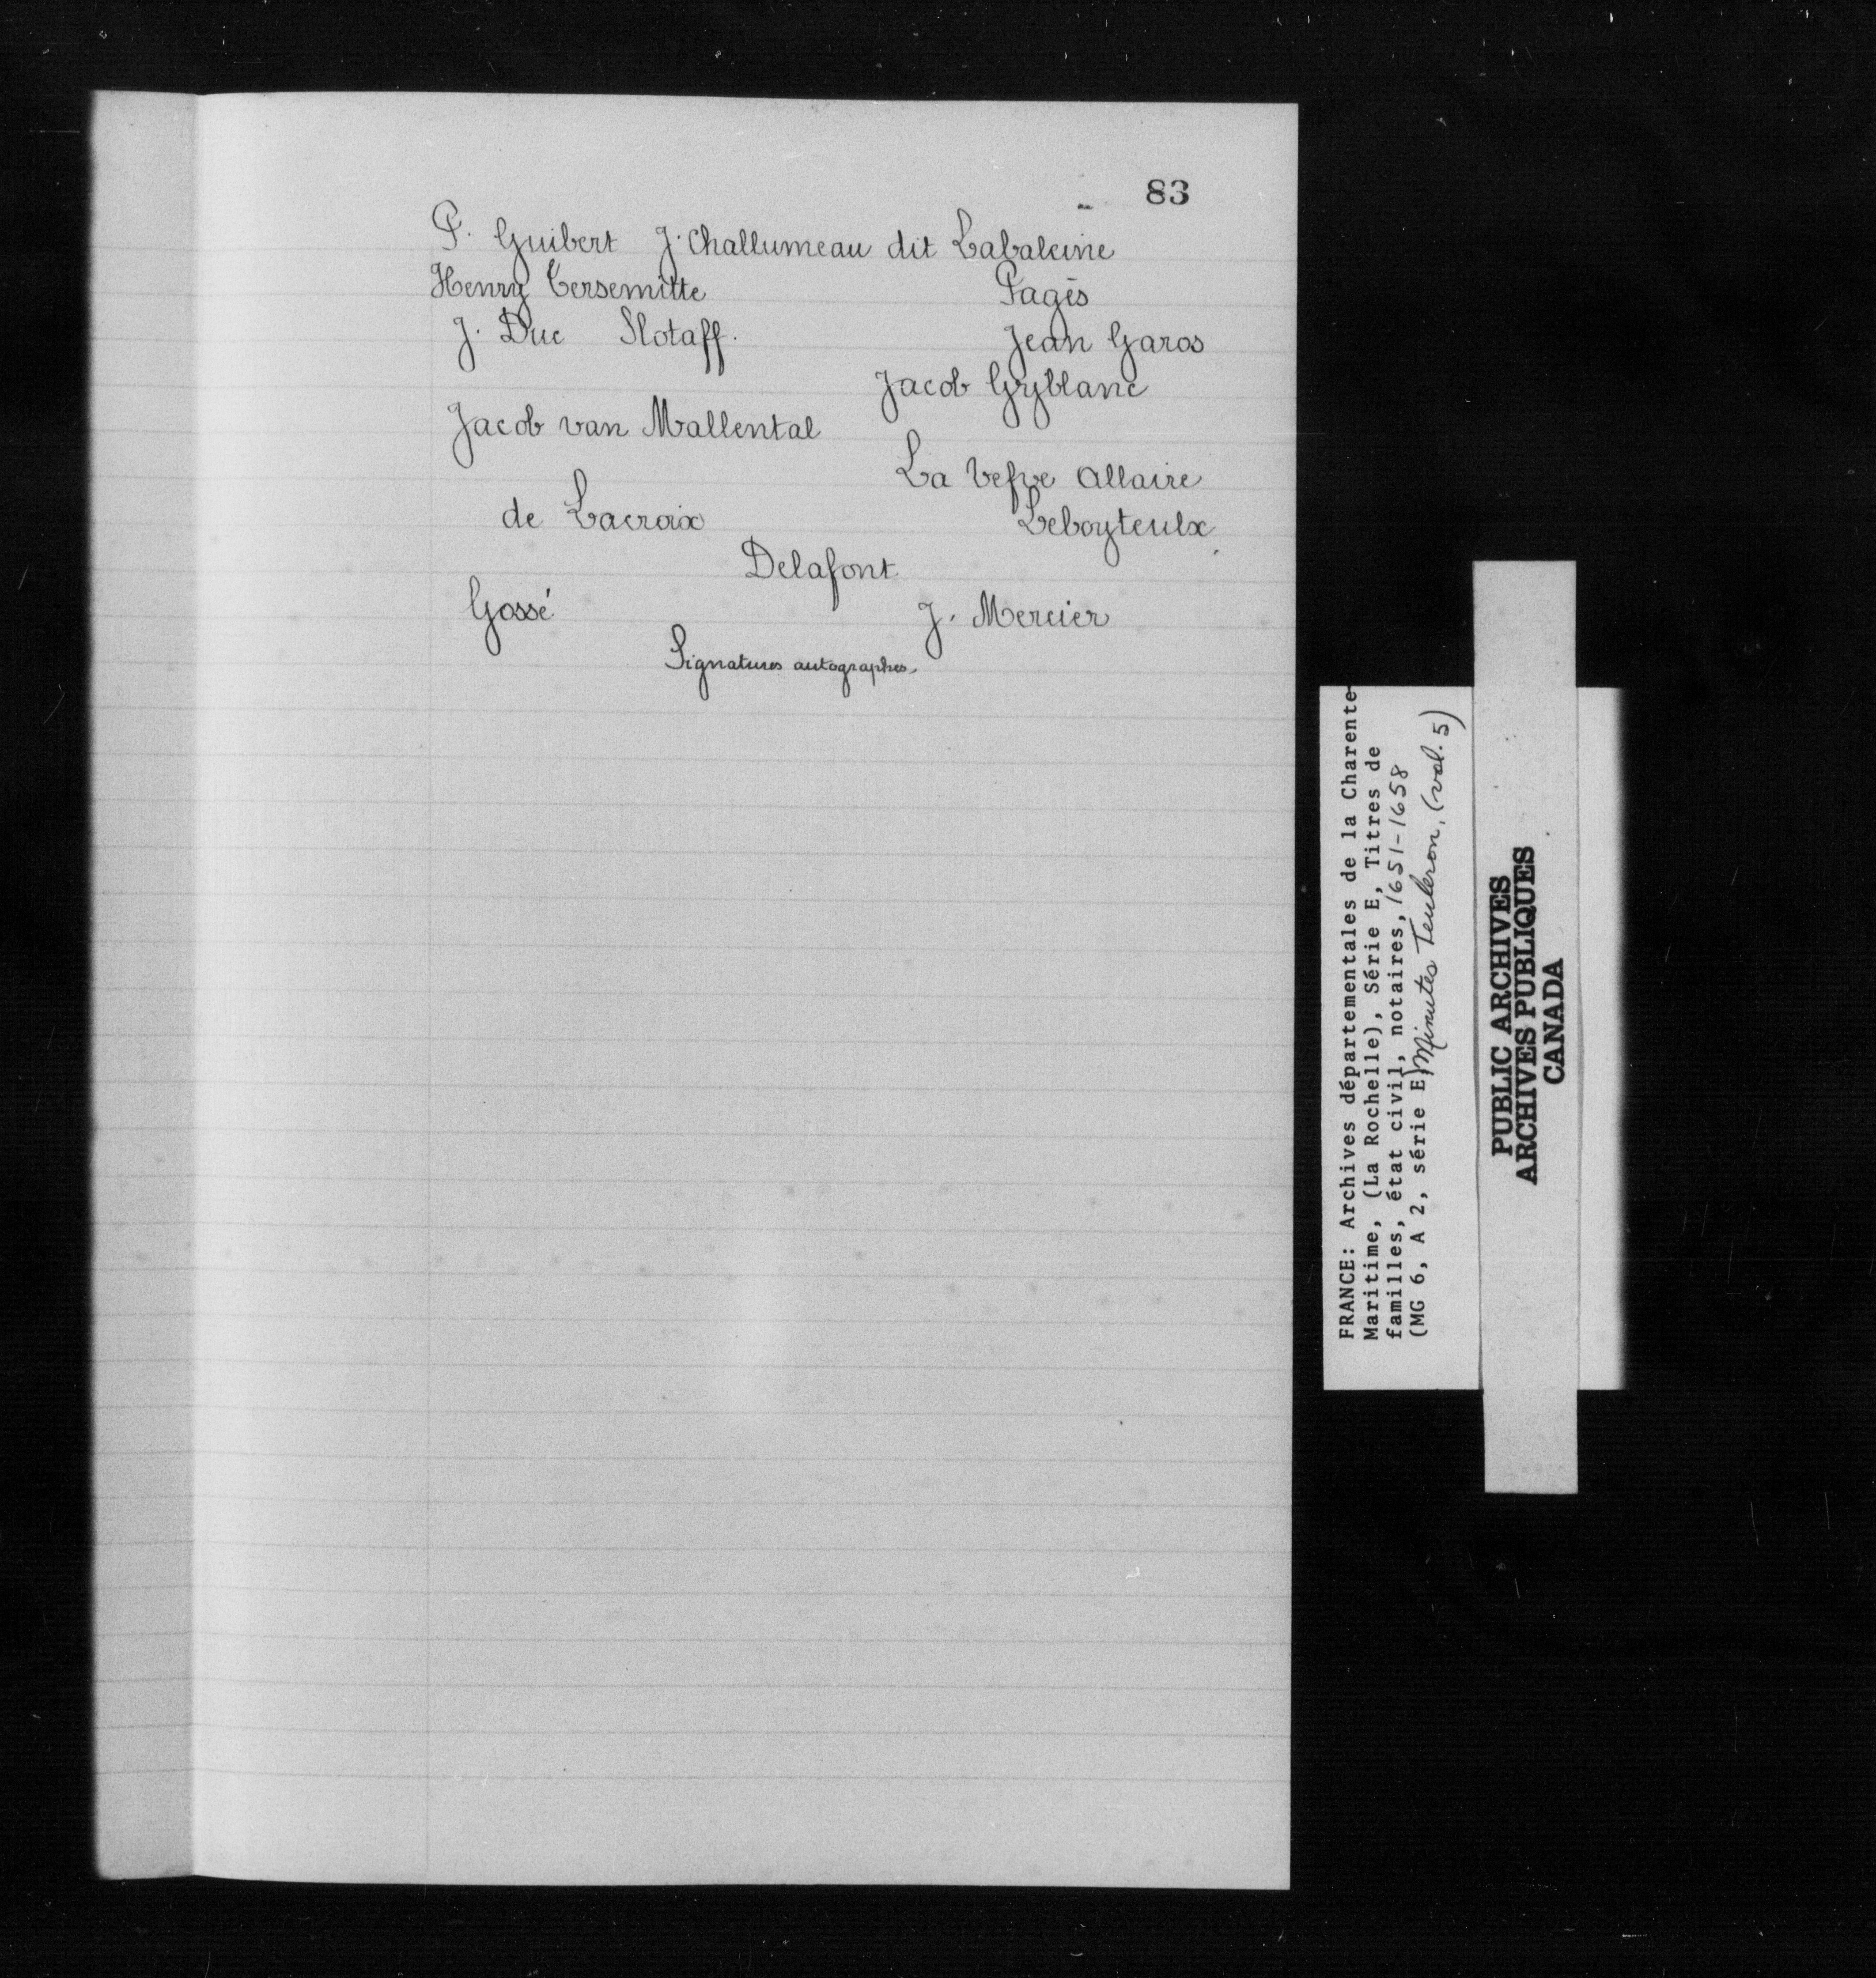 83
P. Guibert J. Challumeau dit Labaleine
Henry Tersemitte Pagès
J. Duc Slotaff.
Jean Garos
Jacob Gyblanc
Jacob van Mallental
La Vefve Allaire
de Lacroix Leboyteulx
Delafont
Gossé J. Mercier
Signatures autographes.
FRANCE: Archives départementales de la Charente-
Maritime, (La Rochelle), Série E, Titres de
familles, état civil, notaires, 1651-1658
(MG 6, A 2, série E) Minutes Teuleron, (vol. 5)
PUBLIC ARCHIVES
ARCHIVES PUBLIQUES
CANADA